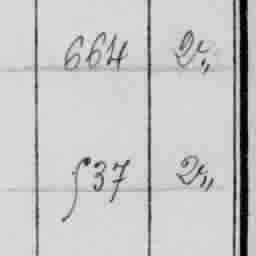 664 2„
537 2„